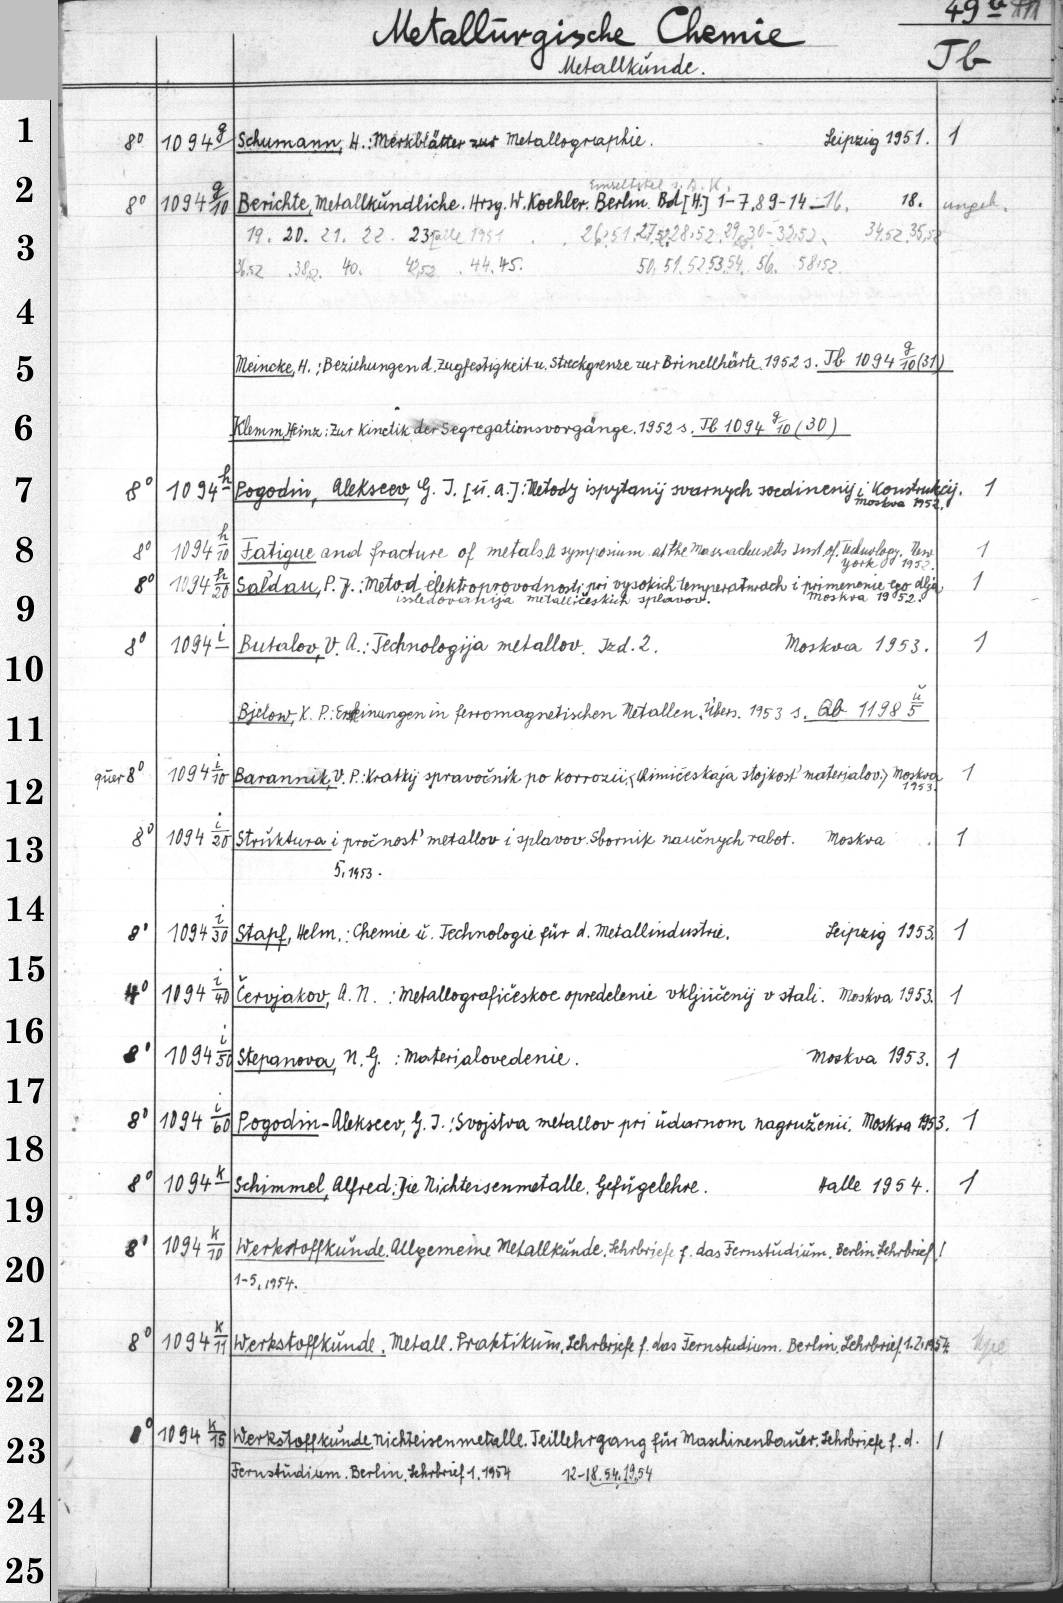 49
Metallurgische Chemie
Metallkunde.
Jb
1
8° 1094 g Schumann, H.: Merkblätter zur Metallographie. Leipzig 1951. 1
2
Einzeltitel s. A. K.
8° 1094 g/10 Berichte, Metallkundliche. Hrsg. W. Koehler. Berlin. Bd [H.] 1-7.89-14-16. 18. ungeb.
3
19. 20. 21. 22. 23 1951 26.51.27.52.28.52.29.30-32.52. 34.52.35.52
36.52 .38. 40. 42.52 .44.45. 50.51.52.53.54. 56. 58.52.
4
5
Meincke, H.: Beziehungen d. Zugfestigkeit u. Streckgrenze zur Brinellhärte. 1952 s. Jb 1094 g/10 (31)
6
Klemm, Heinz: Zur Kinetik der Segregationsvorgänge. 1952 s. Jb 1094 g/10 (30)
7
8° 1094 h Pogodin, Alekseev, G. I. [u. a.]: Metody ispytanij svarnych soedinenij i Konstrukcij. 1
Moskva 1952.
8
8° 1094 h/10 Fatigue and fracture of metals. A symposium at the Massachusetts Inst. of Technology. New 1
York 1952.
8° 1094 h/20 Saldau, P. J.: Metod élektroprovodnosti pri vysokich temperaturach i primenenie ego dlja 1
issledovanija metalličeskich splavov. Moskva 1952.
9
8° 1094 i Butalov, V. A.: Technologija metallov. Izd. 2. Moskva 1953. 1
10
11
Bjelow, K. P.: Erscheinungen in ferromagnetischen Metallen. Übers. 1953 s. Qb 1198 ŭ/5
12
quer 8° 1094 i/10 Barannik, V. P.: Kratkij spravočnik po korrozii, <Chimičeskaja stojkost' materialov.> Moskva 1
1953.
13
8° 1094 i/20 Struktura i pročnost' metallov i splavov. Sbornik naučnych rabot. Moskva . 1
5. 1953.
14
8° 1094 i/30 Stapf, Helm.: Chemie u. Technologie für d. Metallindustrie. Leipzig 1953. 1
15
4° 1094 i/40 Červjakov, A. N. : Metallografičeskoe opredelenie vključenij v stali. Moskva 1953. 1
16
8° 1094 i/50 Stepanova, N. G. : Materialovedenie. Moskva 1953. 1
17
8° 1094 i/60 Pogodin-Alekseev, G. I.: Svojstva metallov pri udarnom nagruženii. Moskva 1953. 1
18
8° 1094 k Schimmel, Alfred: Die Nichteisenmetalle. Gefügelehre. Halle 1954. 1
19
8° 1094 k/10 Werkstoffkunde. Allgemeine Metallkunde. Lehrbriefe f. das Fernstudium. Berlin. Lehrbrief 1
20
1-5. 1954.
21
8° 1094 k/11 Werkstoffkunde. Metall. Praktikum. Lehrbriefe f. das Fernstudium. Berlin. Lehrbrief 1.2. 1954.
22
8° 1094 k/15 Werkstoffkunde. Nichteisenmetalle. Teillehrgang für Maschinenbauer. Lehrbriefe f. d. 1
23
Fernstudium. Berlin. Lehrbrief 1. 1954 12-18. 54. 19. 54
24
25